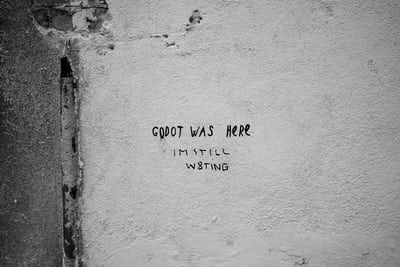 GODOT WAS HERE
IM STILL
W8TING